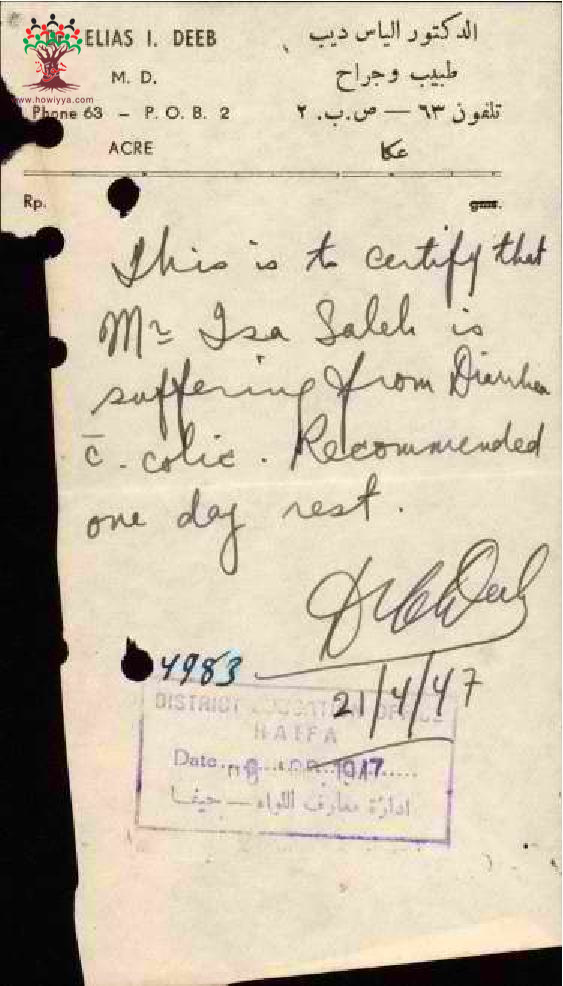 ELIAS I. DEEB
M. D.
Phone 63 – P. O. B. 2
ACRE
الدكتور الياس ديب
طبيب وجراح
تلفون ٦٣ — ص.ب. ٢
عكا
www.howiyya.com
Rp.
This is to certify that
Mr Isa Saleh is
suffering from Diarrhea
c̄. colic. Recommended
one day rest.
4983
21/4/47
DISTRICT EDUCATION OFFICE
HAIFA
Date 1947
ادارة معارف اللواء — حيفا